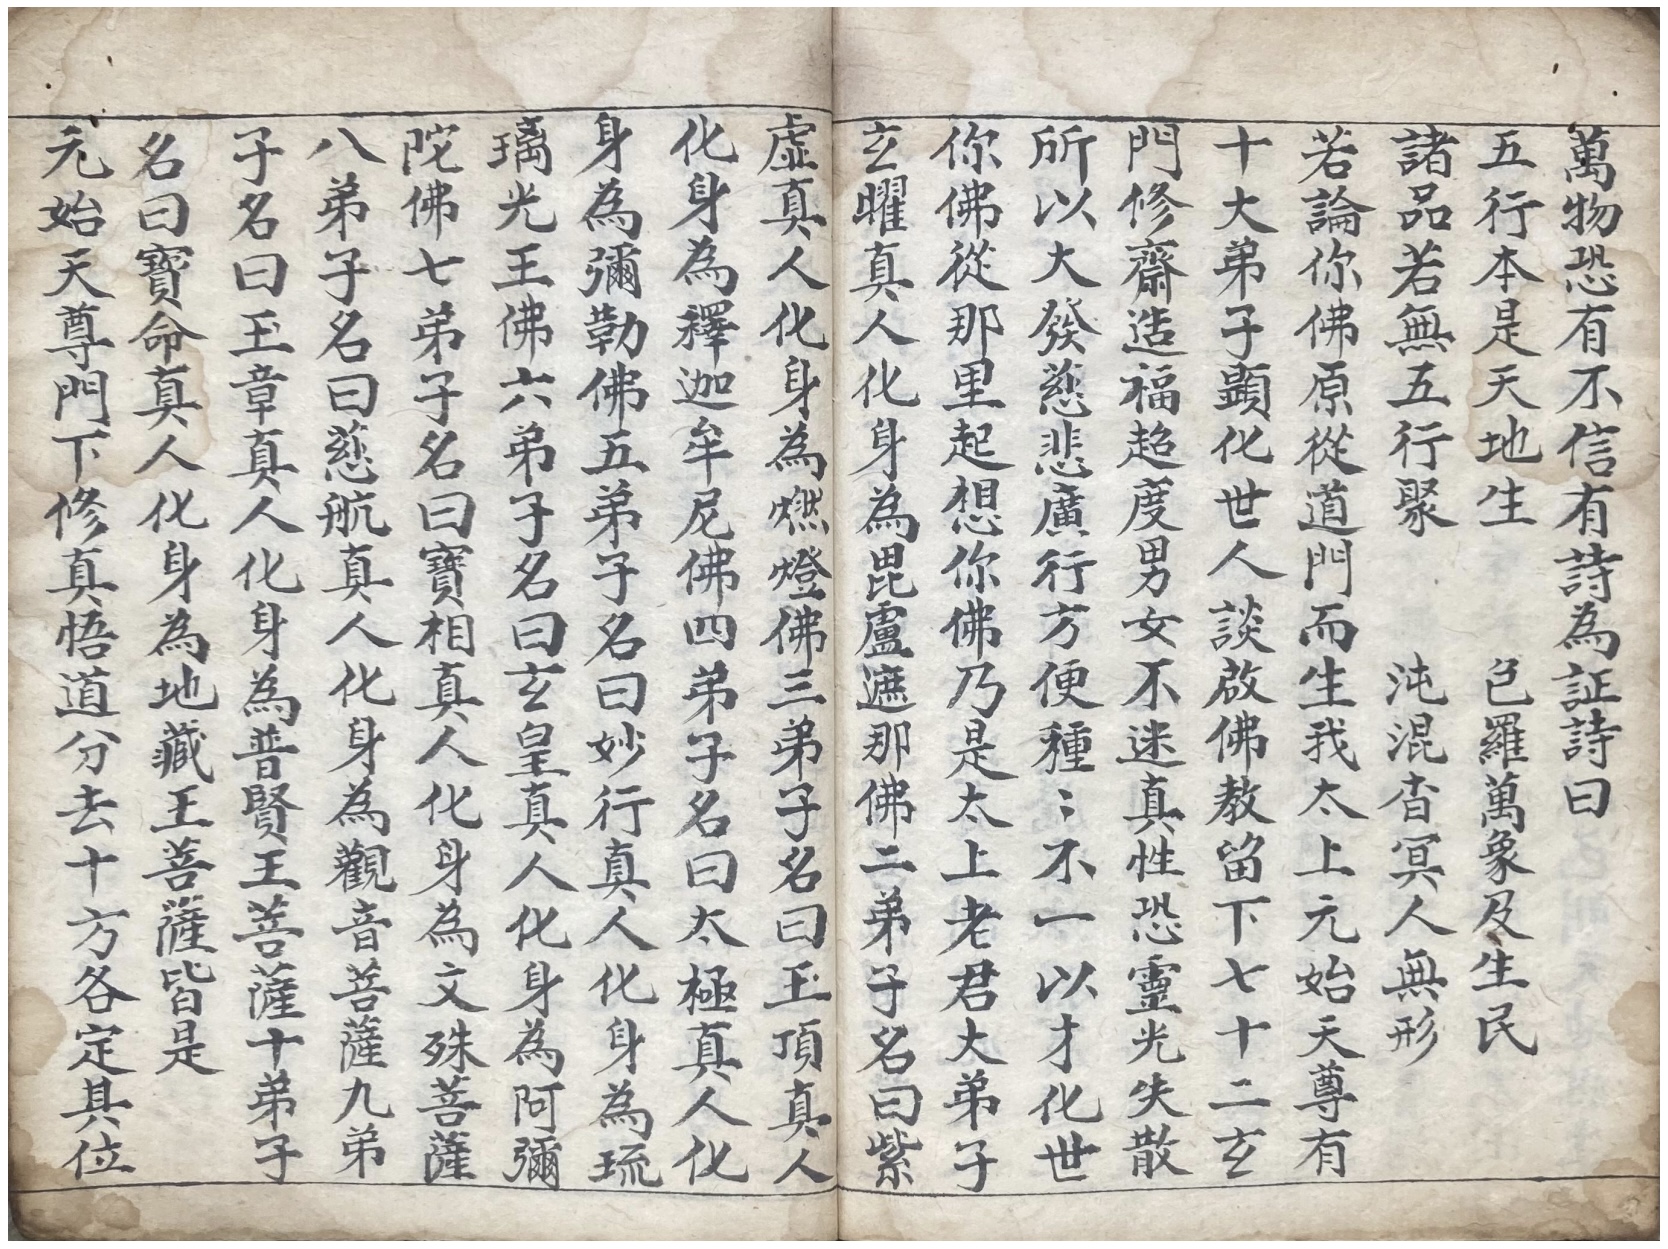 萬物恐有不信有詩為証詩曰
五行本是天地生　色羅萬象及生民
諸品若無五行聚　沌混杳冥人無形
若論你佛原從道門而生我太上元始天尊有
十大弟子顕化世人談啟佛教留下七十二玄
門修齋造福超度男女不迷真性恐靈光失散
所以大發慈悲廣行方便種〻不一以才化世
你佛從那里起想你佛乃是太上老君大弟子
玄曜真人化身為毘盧遮那佛二弟子名曰紫
虛真人化身為燃燈佛三弟子名曰玉頂真人
化身為釋迦牟尼佛四弟子名曰太極真人化
身為彌勒佛五弟子名曰妙行真人化身為琉
璃光王佛六弟子名曰玄皇真人化身為阿彌
陀佛七弟子名曰寶相真人化身為文殊菩薩
八弟子名曰慈航真人化身為觀音菩薩九弟
子名曰玉章真人化身為普賢王菩薩十弟子
名曰寶命真人化身為地藏王菩薩皆是
元始天尊門下修真悟道分去十方各定其位